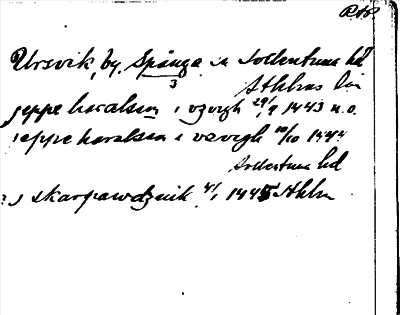 Ursvik, by, Spånga sn Sollentuna hd
3
Sthlms län
jeppe haraksson i vrsvigh 29/9 1443 n.o.
ieppe haraksson i vrsvigh 10/10 1444
Sollentuna hd
j skarpawdzuik 4/1 1445 Sthlm